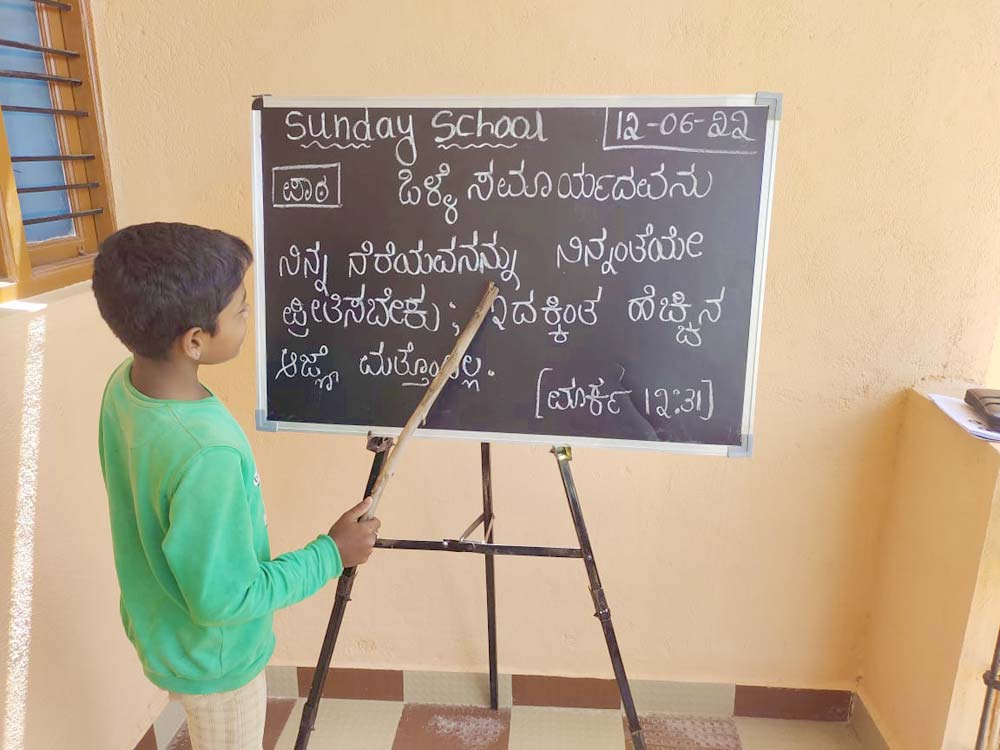 Sunday School 12-06-22
ಪಾಠ ಒಳ್ಳೆ ಸಮಾರ್ಯದವನು
ನಿನ್ನ ನೆರೆಯವನನ್ನು ನಿನ್ನಂತೆಯೇ
ಪ್ರೀತಿಸಬೇಕು; ಇದಕ್ಕಿಂತ ಹೆಚ್ಚಿನ
ಆಜ್ಞೆ ಮತ್ತೊಂದಿಲ್ಲ.
[ಮಾರ್ಕ 12:31]